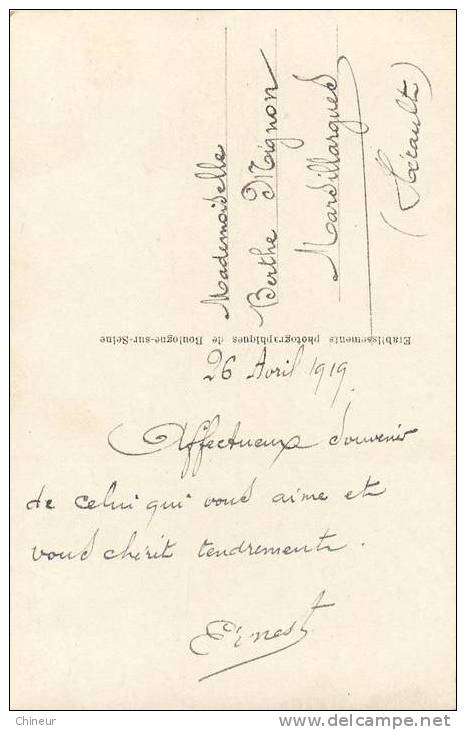 Mademoiselle
Berthe Mignon
Marsillargues
(Hérault)
Etablissements photographiques de Boulogne-sur-Seine
26 Avril 1919
Affectueux souvenir
de celui qui vous aime et
vous chérit tendrement.
Ernest
Chineur
delcampe.net